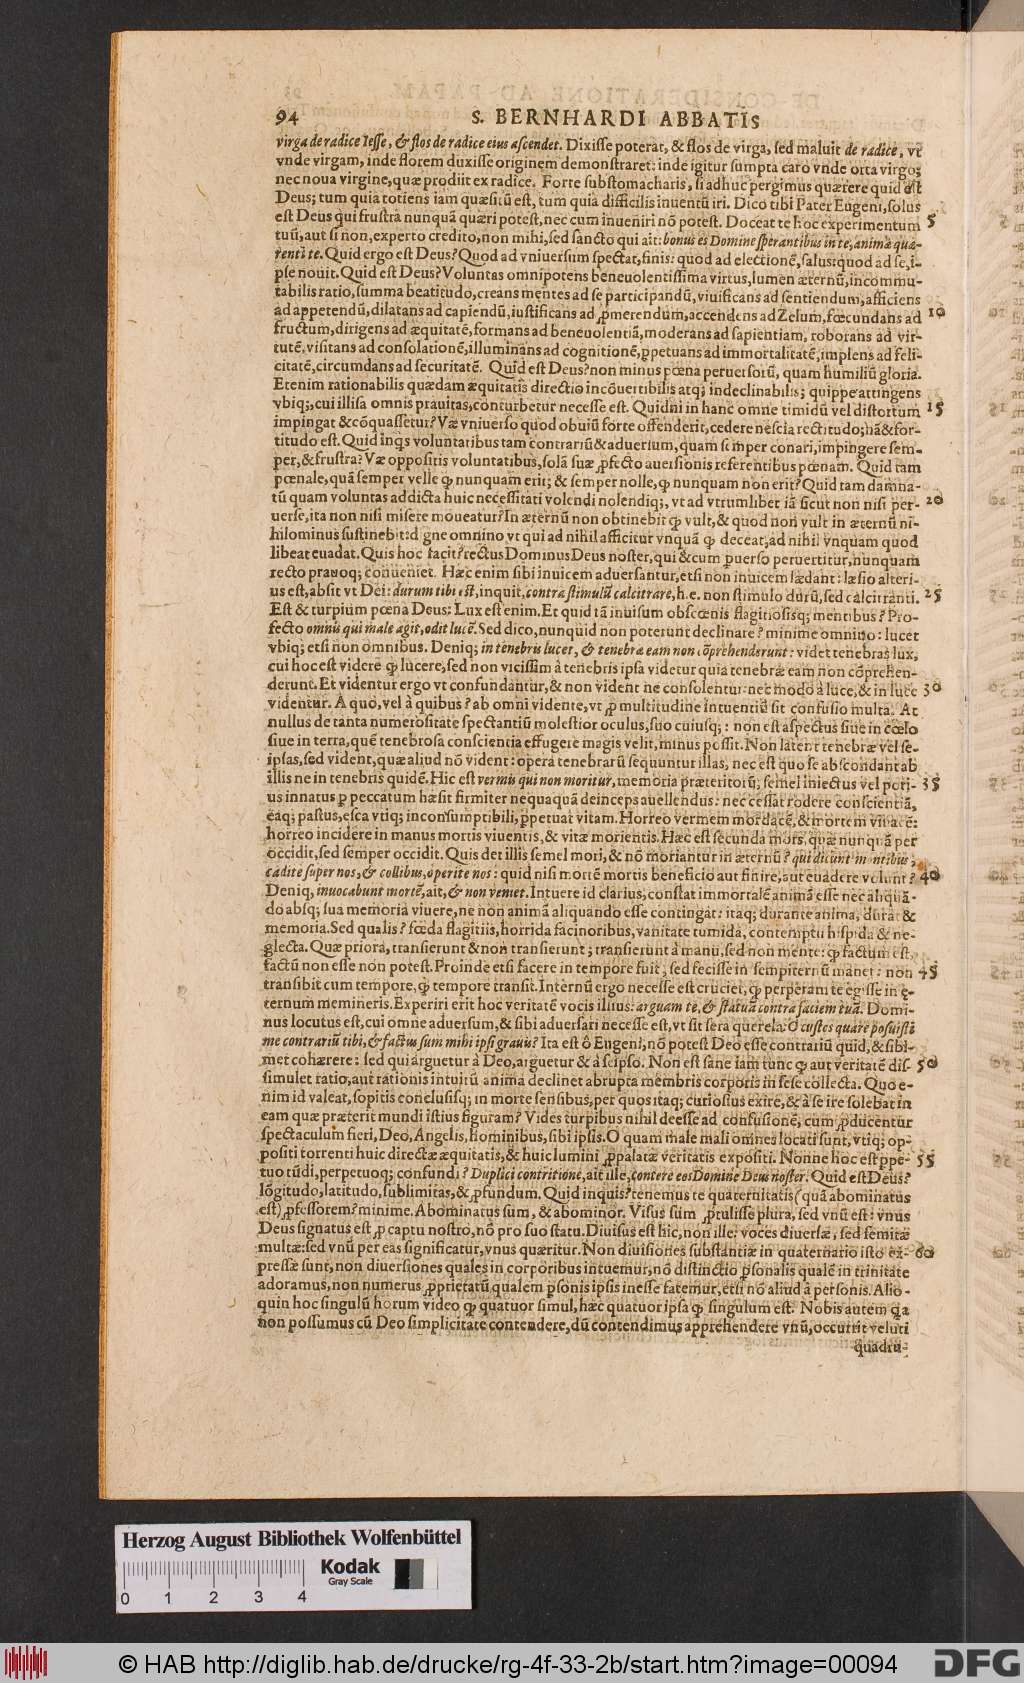 94 S. BERNHARDI ABBATIS
virga de radice Iesse, & flos de radice eius ascendet. Dixisse poterat, & flos de virga, sed maluit de radice, vt
vnde virgam, inde florem duxisse originem demonstraret: inde igitur sumpta caro vnde orta virgo;
nec noua virgine, quæ prodiit ex radice. Forte substomacharis, si adhuc pergimus quærere quid est
Deus; tum quia totiens iam quæsitū est, tum quia difficilis inuentū iri. Dico tibi Pater Eugeni, solus
est Deus qui frustra nunquā quæri potest, nec cum inueniri nō potest. Doceat te hoc experimentum 5
tuū, aut si non, experto credito, non mihi, sed sancto qui ait: bonus es Domine sperantibus in te, animæ quæ-
renti te. Quid ergo est Deus? Quod ad vniuersum spectat, finis: quod ad electionē, salus: quod ad se, i-
pse nouit. Quid est Deus? Voluntas omnipotens beneuolentissima virtus, lumen æternū, incommu-
tabilis ratio, summa beatitudo, creans mentes ad se participandū, viuificans ad sentiendum, afficiens
ad appetendū, dilatans ad capiendū, iustificans ad ꝓmerendum, accendens ad Zelum, fœcundans ad 10
fructum, dirigens ad æquitatē, formans ad beneuolentiā, moderans ad sapientiam, roborans ad vir-
tutē, visitans ad consolationē, illuminans ad cognitionē, ꝑpetuans ad immortalitatē, implens ad feli-
citatē, circumdans ad securitatē. Quid est Deus? non minus pœna peruersorū, quam humiliū gloria.
Etenim rationabilis quædam æquitatis directio incōuertibilis atq; indeclinabilis; quippe attingens
vbiq;, cui illisa omnis prauitas, conturbetur necesse est. Quidni in hanc omne timidū vel distortum 15
impingat & cōquassetur? Væ vniuerso quod obuiū forte offenderit, cedere nescia rectitudo; nā & for-
titudo est. Quid inqs voluntatibus tam contrariū & aduersum, quam semper conari, impingere sem-
per, & frustra? Væ oppositis voluntatibus, solā suæ ꝓfecto auersionis referentibus pœnam. Quid tam
pœnale, quā semper velle ꝙ nunquam erit; & semper nolle, ꝙ nunquam non erit? Quid tam damna-
tū quam voluntas addicta huic necessitati volendi nolendiq;, vt ad vtrumlibet iā sicut non nisi per- 20
uerse, ita non nisi misere moueatur? In æternū non obtinebit ꝙ vult, & quod non vult in æternū ni-
hilominus sustinebit: digne omnino vt qui ad nihil afficitur vnquā ꝙ deceat, ad nihil vnquam quod
libeat euadat. Quis hoc facit? rectus Dominus Deus noster, qui & cum ꝑuerso peruertitur, nunquam
recto prauoq; conueniet. Hæc enim sibi inuicem aduersantur, etsi non inuicem lædant: læsio alteri-
us est, absit vt Dei: durum tibi est, inquit, contra stimulū calcitrare, h.e. non stimulo durū, sed calcitranti. 25
Est & turpium pœna Deus: Lux est enim. Et quid tā inuisum obscœnis flagitiosisq; mentibus? Pro-
fecto omnis qui male agit, odit lucē. Sed dico, nunquid non poterunt declinare? minime omnino: lucet
vbiq; etsi non omnibus. Deniq; in tenebris lucet, & tenebræ eam non cōprehenderunt: videt tenebras lux,
cui hoc est videre ꝙ lucere, sed non vicissim à tenebris ipsa videtur quia tenebræ eam non cōprehen-
derunt. Et videntur ergo vt confundantur, & non vident ne consolentur: nec modo à luce, & in luce 30
videntur. A quo, vel à quibus? ab omni vidente, vt ꝓ multitudine intuentiū sit confusio multa. At
nullus de tanta numerositate spectantiū molestior oculus, suo cuiusq; : non est aspectus siue in cœlo
siue in terra, quē tenebrosa conscientia effugere magis velit, minus possit. Non latent tenebræ vel se-
ipsas, sed vident, quæ aliud nō vident: opera tenebrarū sequuntur illas, nec est quo se abscondant ab
illis ne in tenebris quidē. Hic est vermis qui non moritur, memoria præteritorū; semel iniectus vel poti- 35
us innatus ꝑ peccatum hæsit firmiter nequaquā deinceps auellendus: nec cessat rodere conscientiā,
eaq; pastus, esca vtiq; inconsumptibili, ꝑpetuat vitam. Horreo vermem mordacē, & mortem viuacē:
horreo incidere in manus mortis viuentis, & vitæ morientis. Hæc est secunda mors, quæ nunquā per
occidit, sed semper occidit. Quis det illis semel mori, & nō moriantur in æternū? qui dicunt montibus;
cadite super nos, & collibus, operite nos: quid nisi mortē mortis beneficio aut finire, aut euadere volunt? 40
Deniq, inuocabunt mortē, ait, & non veniet. Intuere id clarius, constat immortalē animā esse nec aliquā-
do absq; sua memoria viuere, ne non animā aliquando esse contingat: itaq; durante anima, durat &
memoria. Sed qualis? fœda flagitiis, horrida facinoribus, vanitate tumida, contemptu hispida & ne-
glecta. Quæ priora, transierunt & non transierunt; transierunt à manu, sed non mente: ꝙ factum est,
factū non esse non potest. Proinde etsi facere in tempore fuit, sed fecisse in sempiternū manet: non 45
transibit cum tempore, ꝙ tempore transit. Internū ergo necesse est cruciet, ꝙ perperam te egisse in ę-
ternum memineris. Experiri erit hoc veritatē vocis illius: arguam te, & statuā contra faciem tuā. Domi-
nus locutus est, cui omne aduersum, & sibi aduersari necesse est, vt sit sera querela: O custos quare posuisti
me contrariū tibi, & factus sum mihi ipsi grauis? Ita est ô Eugeni, nō potest Deo esse contrariū quid, & sibi-
met cohærere: sed qui arguetur à Deo, arguetur & à seipso. Non est sane iam tunc ꝙ aut veritatē dis- 50
simulet ratio, aut rationis intuitū anima declinet abrupta membris corporis in sese collecta. Quo e-
nim id valeat, sopitis conclusisq; in morte sensibus, per quos itaq; curiosius exire, & à se ire solebat in
eam quæ præterit mundi istius figuram? Vides turpibus nihil deesse ad confusionē, cum ꝓducentur
spectaculum fieri, Deo, Angelis, hominibus, sibi ipsis. O quam male mali omnes locati sunt, vtiq; op-
positi torrenti huic directæ æquitatis, & huic lumini ꝓpalatæ veritatis expositi. Nonne hoc est ꝑpe- 55
tuo tūdi, perpetuoq; confundi? Duplici contritione, ait ille, contere eos Domine Deus noster. Quid est Deus?
lōgitudo, latitudo, sublimitas, & ꝓfundum. Quid inquis? tenemus te quaternitatis (quā abominatus
est) ꝓfessorem? minime. Abominatus sum, & abominor. Visus sum ꝓtulisse plura, sed vnū est: vnus
Deus signatus est, ꝓ captu nostro, nō pro suo statu. Diuisus est hic, non ille: voces diuersæ, sed semitæ
multæ: sed vnū per eas significatur, vnus quæritur. Non diuisiones substantiæ in quaternario isto ex- 60
pressæ sunt, non diuersiones quales in corporibus intuemur, nō distinctio ꝑsonalis qualē in trinitate
adoramus, non numerus ꝓprietatū qualem ꝑsonis ipsis inesse fatemur, etsi nō aliud à personis. Alio-
quin hoc singulū horum video ꝙ quatuor simul, hæc quatuor ipsa ꝙ singulum est. Nobis autem qa
non possumus cū Deo simplicitate contendere, dū contendimus apprehendere vnū, occurrit veluti
quadru-
Herzog August Bibliothek Wolfenbüttel
Kodak
Gray Scale
0 1 2 3 4
© HAB http://diglib.hab.de/drucke/rg-4f-33-2b/start.htm?image=00094
DFG